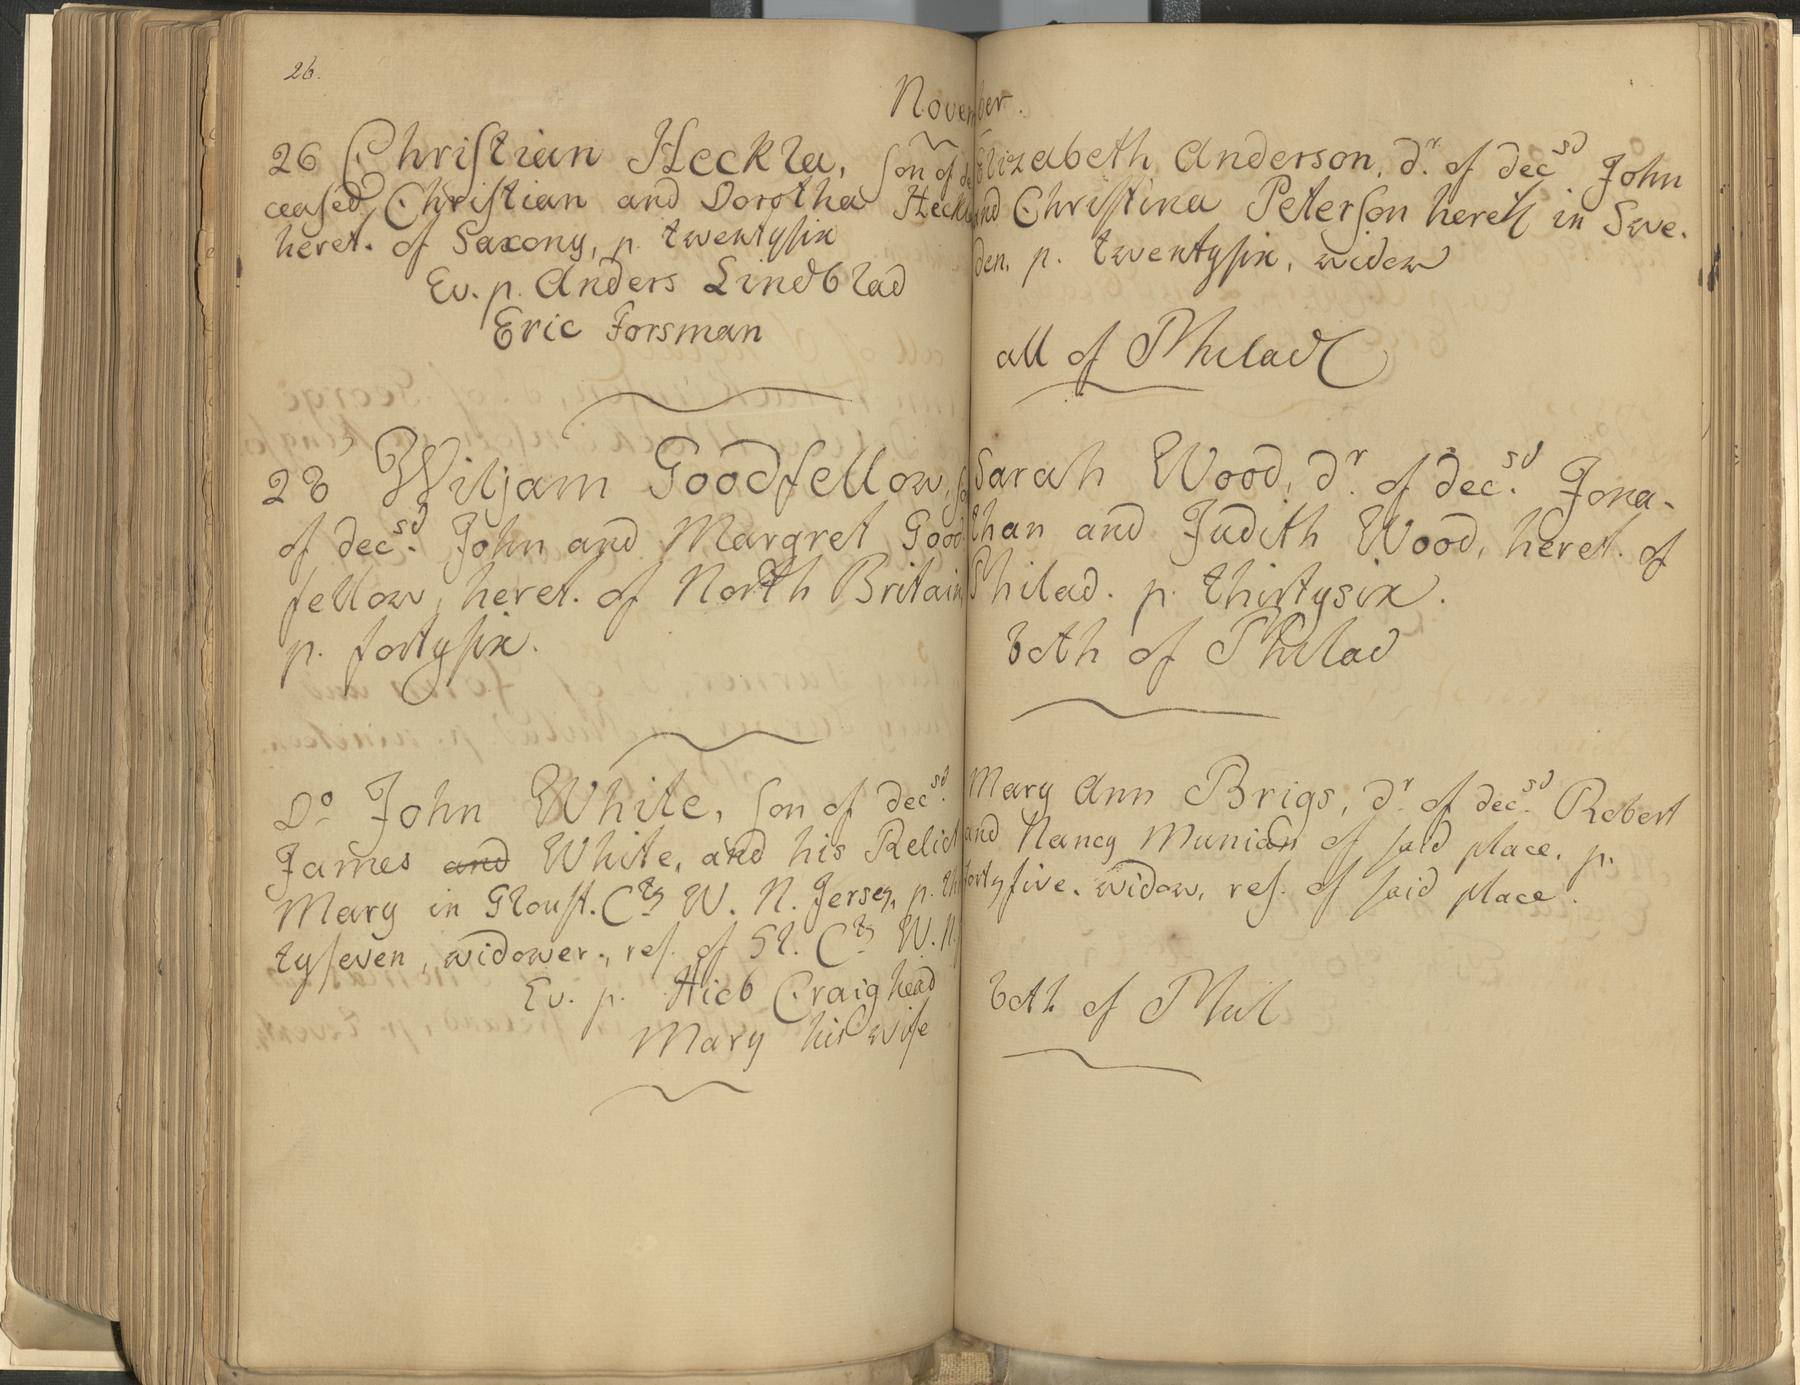 26.
November.
26 Christian Heckla, son of de
ceased Christian and Dorothea Heckla
heret. of Saxony, p. twentysix
Ev. p. Anders Lindblad
Eric Forsman
28 Wiljam Goodfellow, s
of decsd. John and Margret Good
fellow, heret. of North Britain
p. fortysix.
Do John White, son of decsd.
James and White, and his Relict
Mary in Gloust. Cty W. N. Jersey, p. thir
tyseven, widower, res. of Gl. Cty W. N.
Ev. p. Hieb Craighead
Mary his wife
Elizabeth Anderson, dr. of decsd John
and Christina Peterson heret in Swe.
den. p. twentysix, widow
all of Philad
Sarah Wood, dr. of decsd. Jona-
than and Judith Wood, heret. of
Philad. p. thirtysix.
both of Philad
Mary Ann Brigs, dr. of decsd. Robert
and Nancy Munian of said place, p.
fortyfive. widow, res. of said place.
both of Phil